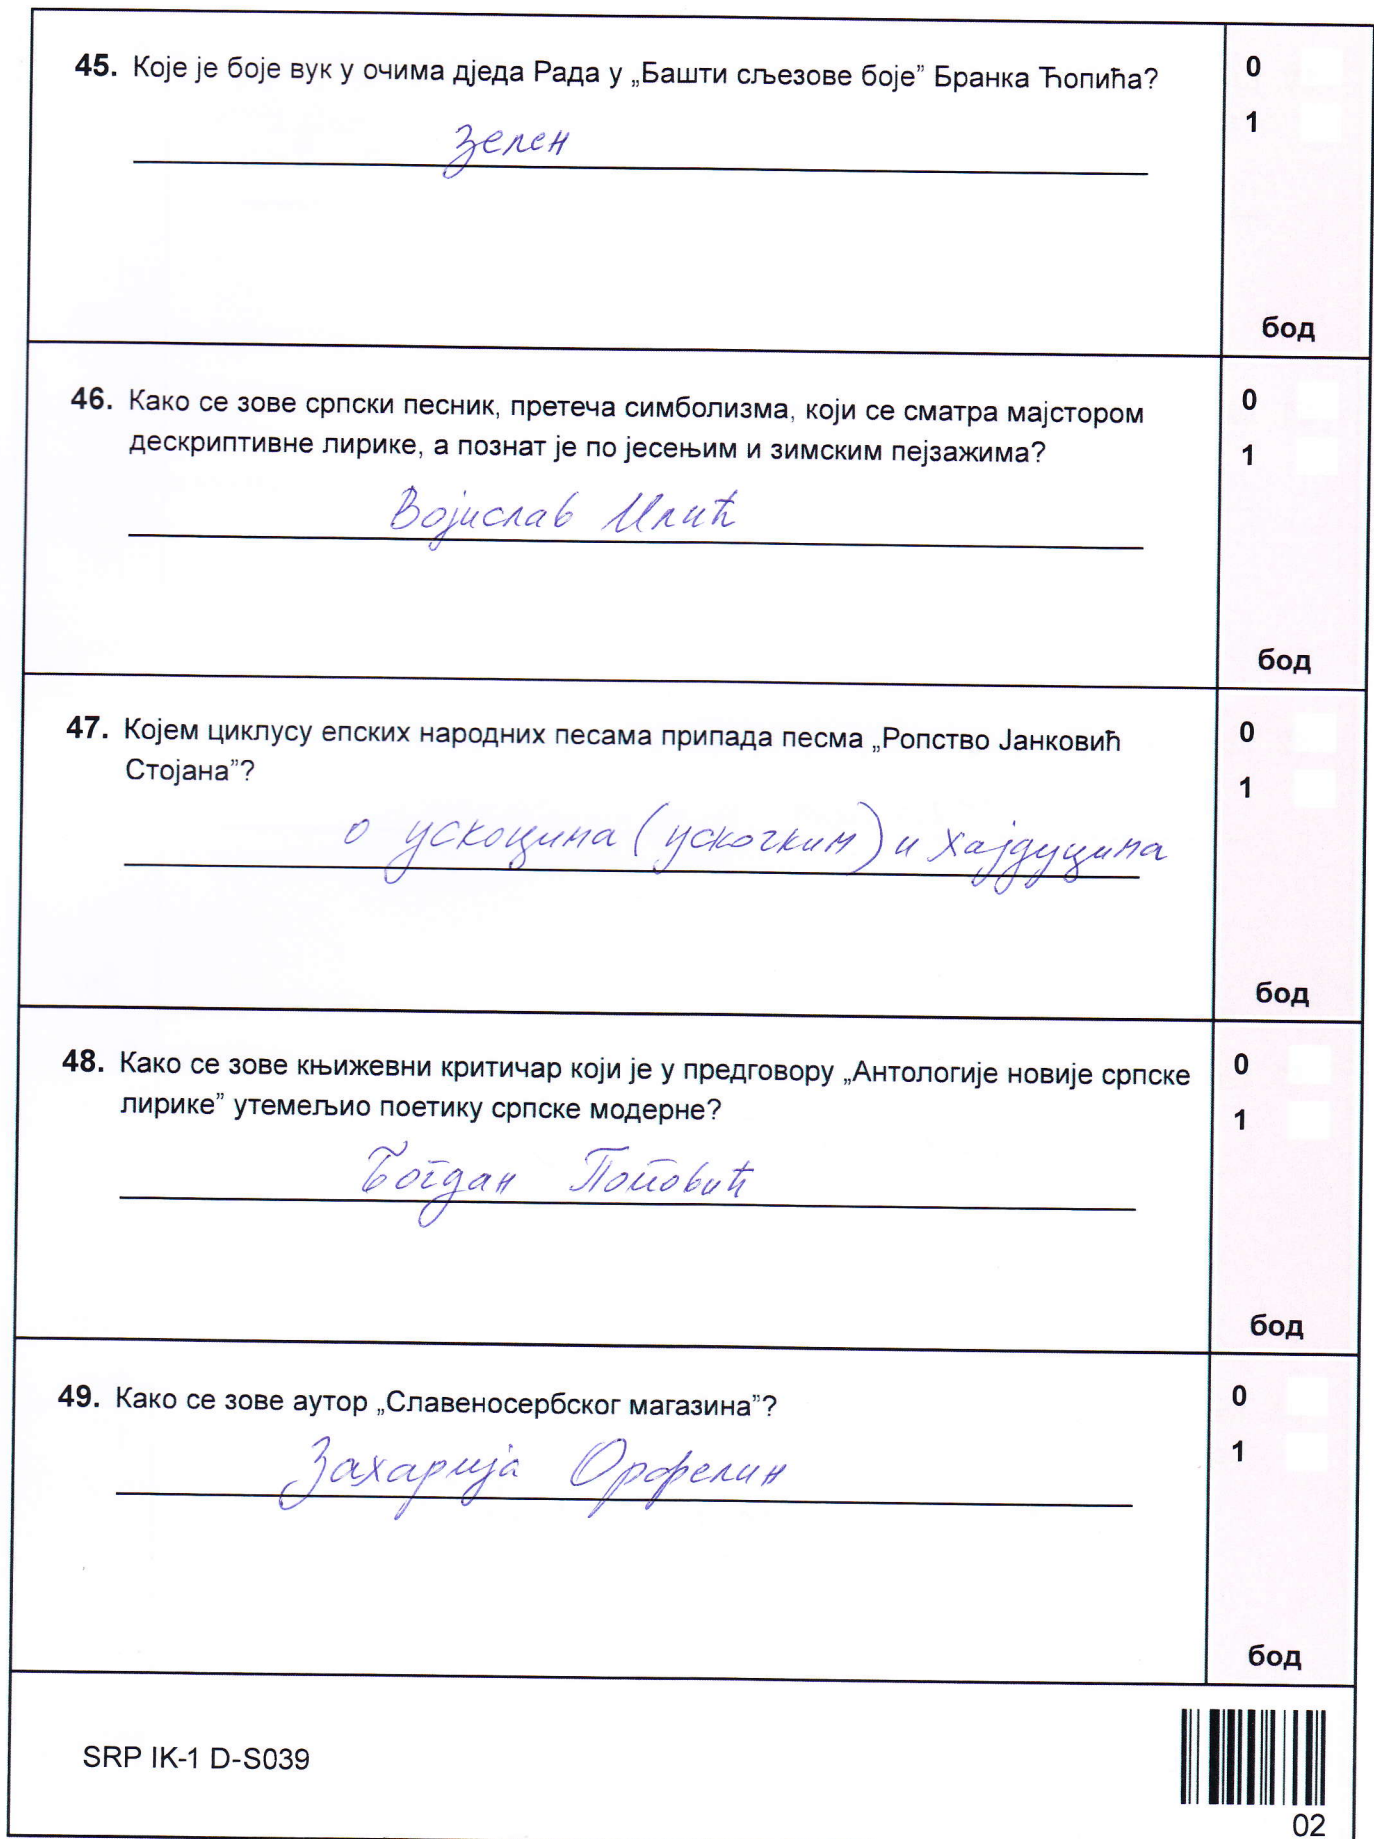 45. Које је боје вук у очима дједа Рада у „Башти сљезове боје” Бранка Ћопића?
0
1
зелен
бод
46. Како се зове српски песник, претеча симболизма, који се сматра мајстором
дескриптивне лирике, а познат је по јесењим и зимским пејзажима?
0
1
Војислав Илић
бод
47. Којем циклусу епских народних песама припада песма „Ропство Јанковић
Стојана”?
0
1
о ускоцима (ускочким) и хајдуцима
бод
48. Како се зове књижевни критичар који је у предговору „Антологије новије српске
лирике” утемељио поетику српске модерне?
0
1
Богдан Поповић
бод
49. Како се зове аутор „Славеносербског магазина”?
0
1
Захарија Орфелин
бод
SRP IK-1 D-S039
02